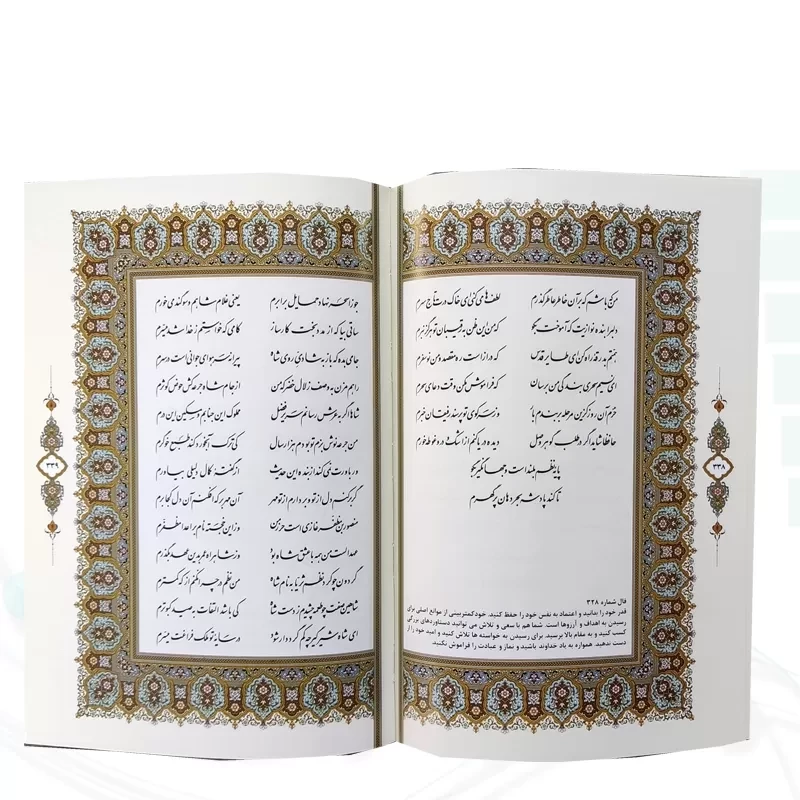 من که باشم که بر آن خاطر عاطر گذرم لطف‌ها می‌کنی ای خاک درت تاج سرم
دلبرا بنده نوازیت که آموخت بگو که من این ظن به رقیبان تو هرگز نبرم
همتم بدرقه راه کن ای طایر قدس که دراز است ره مقصد و من نوسفرم
ای نسیم سحری بندگی من برسان که فراموش مکن وقت دعای سحرم
خرم آن روز کزین مرحله بربندم بار وز سر کوی تو پرسند رفیقان خبرم
حافظا شاید اگر در طلب گوهر وصل دیده دریا کنم از اشک و در او غوطه خورم
پایه نظم بلند است و جهانگیر بگو
تا کند پادشه بحر دهان پر گهرم
فال شماره ۳۲۸
قدر خود را بدانید و اعتماد به نفس خود را حفظ کنید. خودکمتربینی از موانع اصلی برای
رسیدن به اهداف و آرزوها است. شما هم با سعی و تلاش می توانید دستاوردهای بزرگی
کسب کنید و به مقام بالا برسید. برای رسیدن به خواسته ها تلاش کنید و امید خود را از
دست ندهید. همواره به یاد خداوند باشید و نماز و عبادت را فراموش نکنید.
۳۳۸
جوزا سحر نهاد حمایل برابرم یعنی غلام شاهم و سوگند می خورم
ساقی بیا که از مدد بخت کارساز کامی که خواستم ز خدا شد میسرم
جامی بده که باز به شادی روی شاه پیرانه سر هوای جوانی است در سرم
راهم مزن به وصف زلال خضر که من از جام شاه جرعه کش حوض کوثرم
شاها اگر به عرش رسانم سریر فضل مملوک این جنابم و مسکین این درم
من جرعه نوش بزم تو بودم هزار سال کی ترک آبخورد کند طبع خوگرم
ور باورت نمی کند از بنده این حدیث از گفته کمال دلیلی بیاورم
گر برکنم دل از تو و بردارم از تو مهر آن مهر بر که افکنم آن دل کجا برم
منصور بن مظفر غازی است حرز من وز این خجسته نام بر اعدا مظفرم
عهد الست من همه با عشق شاه بود وز شاهراه عمر بدین عهد بگذرم
گردون چو کرد نظم ثریا به نام شاه من نظم در چرا نکنم از که کمترم
شاهین صفت چو طعمه چشیدم ز دست شاه کی باشد التفات به صید کبوترم
ای شاه شیرگیر چه کم گردد ار شود در سایه تو ملک فراغت میسرم
۳۳۹